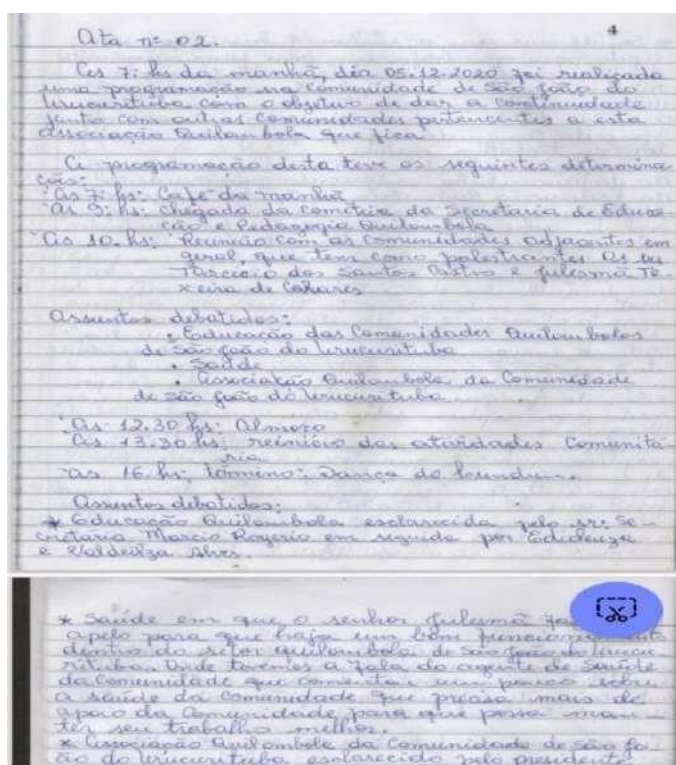 4
Ata nº 02.
As 7: hs da manhã, dia 05.12.2020 foi realizada
uma programação na comunidade de São João do
Urucurituba com o objetivo de dar a continuidade
junto com outras comunidades pertencentes a esta
associação Quilombola que fica
A programação desta teve os seguintes determina
ções:
As 7: hs: Café da manhã
As 9: hs: chegada da comitiva da Secretaria de Educa
ção e Pedagogia Quilombola
As 10. hs: Reunião com as comunidades adjacentes em
geral, que tem como palestrantes Os srs
Tarcicio dos Santos Castro e Julesmã Te
xeira de
Assuntos debatidos:
• Educação das Comunidades Quilombolas
de São João do Urucurituba
• Saúde
• Associação Quilombola da Comunidade
de São João do Urucurituba
As 12.30 hs: Almoço
As 13.30 hs: reinício das atividades Comunitá
ria
as 16. hs: término: Dança do
Assuntos debatidos:
* Educação Quilombola esclarecida pelo sr: Se-
cretario Marcio Rogerio em seguida por
e Alves.
* Saúde em que, o senhor Julesmã
apelo para que haja um bom funcionamento
dentro do setor quilombola de São João do Urucu
rituba. Onde tivemos a fala do agente de Saúde
da comunidade que comentou um pouco sobre
a saúde da comunidade que precisa mais de
apoio da Comunidade para que possa man-
ter seu trabalho melhor.
* Associação Quilombola da Comunidade de São Jo
ão do Urucurituba esclarecido pelo presidente